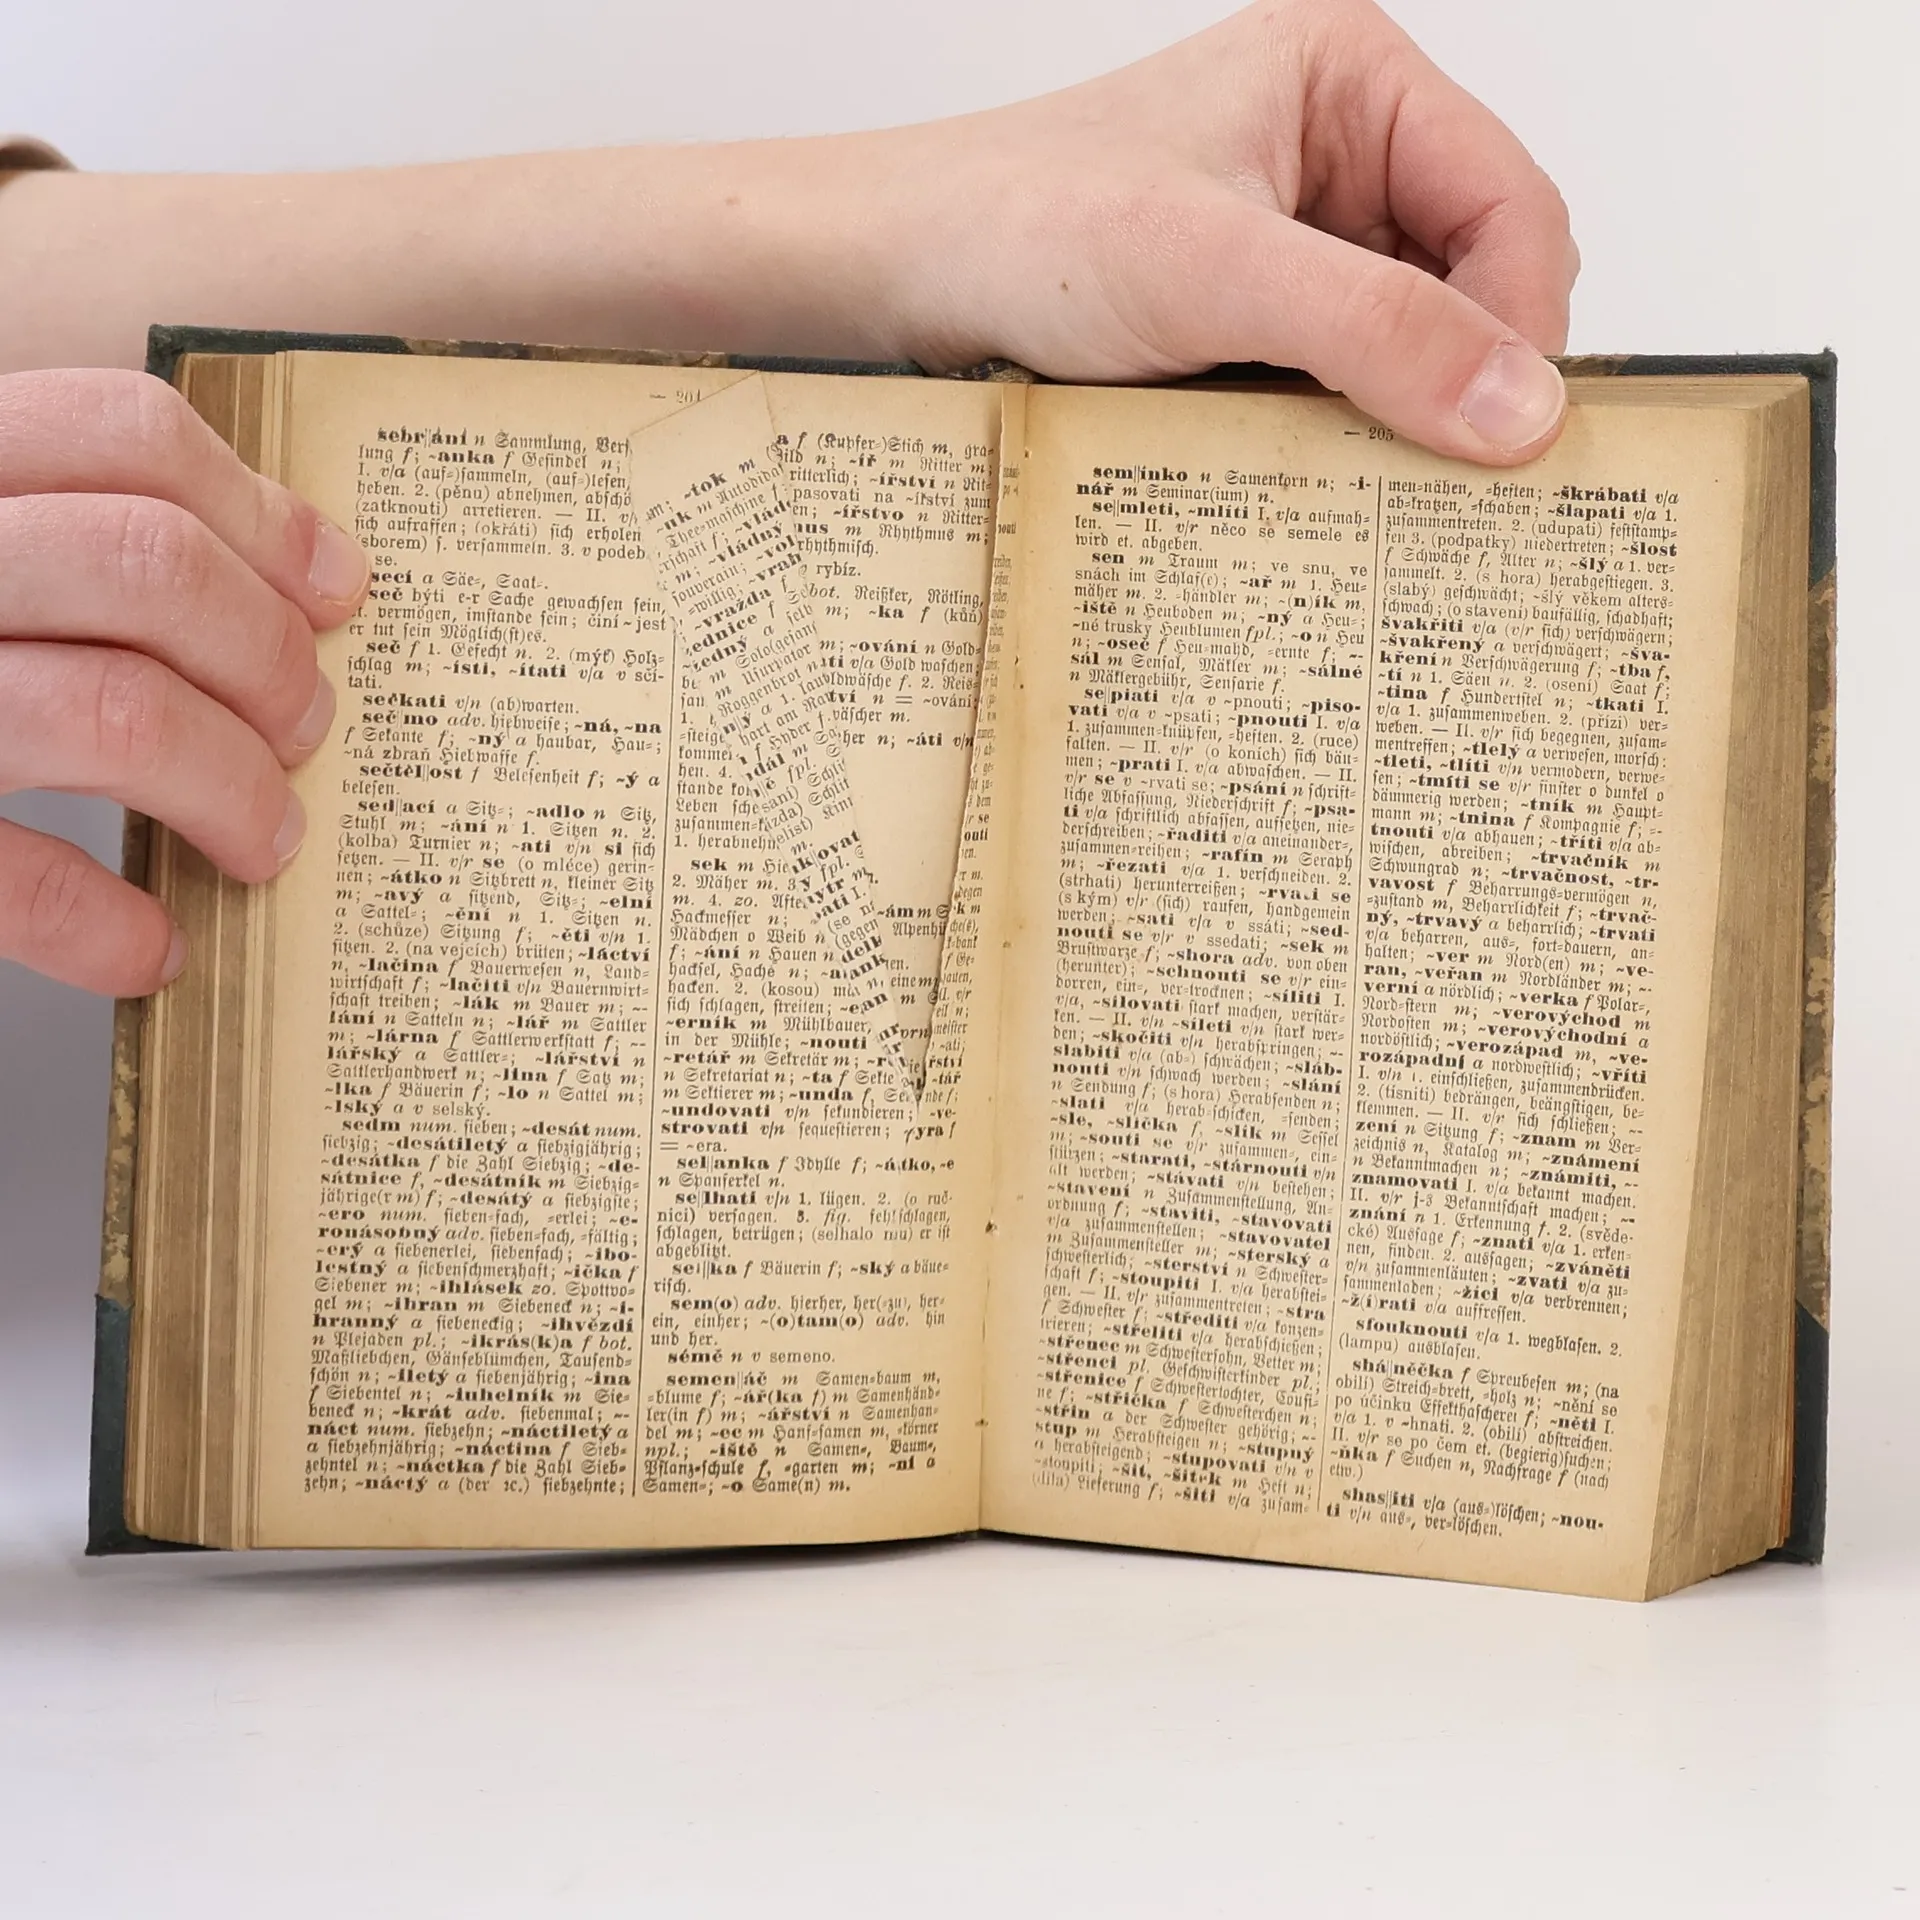 — 204
sebr||ání n Sammlung, Vers
lung f; ~anka f Gesindel n;
I. v/a (auf=)sammeln, (auf=)lesen,
heben. 2. (pěnu) abnehmen, abschö
(zatknouti) arretieren. — II. v/
sich aufraffen; (okřáti) sich erholen
(sborem) s. versammeln. 3. v podeb
se.
secí a Säe=, Saat=.
seč býti e-r Sache gewachsen sein,
vermögen, imstande sein; činí ~ jest
er tut sein Möglich(st)es.
seč f 1. Gefecht n. 2. (mýť) Holz=
schlag m; ~ísti, ~ítati v/a v sčí-
tati.
sečkati v/n (ab)warten.
seč||mo adv. hiebweise; ~ná, ~na
f Sekante f; ~ný a haubar, Hau=;
~ná zbraň Hiebwaffe f.
sečtěl||ost f Belesenheit f; ~ý a
belesen.
sed||ací a Sitz=; ~adlo n Sitz,
Stuhl m; ~ání n 1. Sitzen n. 2.
(kolba) Turnier n; ~ati v/n si sich
setzen. — II. v/r se (o mléce) gerin=
nen; ~átko n Sitzbrett n, kleiner Sitz
m; ~avý a sitzend, Sitz=; ~elní
a Sattel=; ~ění n 1. Sitzen n.
2. (schůze) Sitzung f; ~ěti v/n 1.
sitzen. 2. (na vejcích) brüten; ~láctví
n, ~lačina f Bauerwesen n, Land=
wirtschaft f; ~lačiti v/n Bauernwirt=
schaft treiben; ~lák m Bauer m; ~
lání n Satteln n; ~lář m Sattler
m; ~lárna f Sattlerwerkstatt f; ~-
lářský a Sattler=; ~lářství n
Sattlerhandwerk n; ~lina f Satz m;
~lka f Bäuerin f; ~lo n Sattel m;
~lský a v selský.
sedm num. sieben; ~desát num.
siebzig; ~desátiletý a siebzigjährig;
~desátka f die Zahl Siebzig; ~de-
sátnice f, ~desátník m Siebzig=
jährige(r m) f; ~desátý a siebzigste;
~ero num. sieben=fach, =erlei; ~e-
ronásobný adv. sieben=fach, =fältig;
~erý a siebenerlei, siebenfach; ~ibo-
lestný a siebenschmerzhaft; ~ička f
Siebener m; ~ihlásek zo. Spottvo=
gel m; ~ihran m Siebeneck n; ~i-
hranný a siebeneckig; ~ihvězdí
n Plejaden pl.; ~ikrás(k)a f bot.
Maßliebchen, Gänseblümchen, Tausend=
schön n; ~iletý a siebenjährig; ~ina
f Siebentel n; ~iuhelník m Sie=
beneck n; ~krát adv. siebenmal; ~-
náct num. siebzehn; ~náctiletý a
a siebzehnjährig; ~náctina f Sieb=
zehntel n; ~náctka f die Zahl Sieb=
zehn; ~náctý a (der 2c.) siebzehnte;
a f (Kupfer=)Stich m, gra=
ild n; ~íř m Ritter m;
ritterlich; ~ířství n Rit=
pasovati na ~ířství zum
en; ~ířstvo n Ritter=
mus m Rhythmus m;
rhythmisch.
rybíz.
bot. Reißker, Rötling,
m; ~ka f (kůň)
m; ~ování n Gold=
ti v/a Gold waschen;
ldwäsche f. 2. Reis=
tví n = ~ování
wäscher m.
her n; ~áti v/n
~tok m
~uk m Autodida
Thee=maschine f;
rschaft f; ~vlád
m; ~vládný
souverain; ~vol
=willig; ~vrah
~vražda f
jednice f
zedný a selb
m Solo(gesan
m Usurpator
Roggenbrot n
hart am Ra
f Hyder f.
1.
=steige
komme
hen. 4.
stande
Leben
zusammen=
1. herabneh
sek m Hie
2. Mäher m. 3.
m. 4. zo. Afte
Hackmesser n;
Mädchen o Weib n
f; ~ání n Hauen n
hacksel, Haché n;
hacken. 2. (kosou)
sich schlagen, streiten;
~erník m Mühlbauer,
in der Mühle; ~nouti
~retář m Sekretär m;
n Sekretariat n; ~ta f Sekte
m Sektierer m; ~unda f,
~undovati v/n sekundieren; ~ve-
strovati v/n sequestieren; ~yra f
= ~era.
sel||anka f Idylle f; ~átko, ~e
n Spanferkel n.
se||lhati v/n 1. lügen. 2. (o ruč-
nici) versagen. 3. fig. fehlschlagen,
schlagen, betrügen; (selhalo mu) er ist
abgeblitzt.
sel||ka f Bäuerin f; ~ský a bäue=
risch.
sem(o) adv. hierher, her(=zu), her=
ein, einher; ~(o)tam(o) adv. hin
und her.
sémě n v semeno.
semen||áč m Samen=baum m,
=blume f; ~ář(ka f) m Samenhänd=
ler(in f) m; ~ářství n Samenhan=
del m; ~ec m Hanf=samen m, =körner
npl.; ~iště n Samen=, Baum=,
Pflanz=schule f, =garten m; ~ní a
Samen=; ~o Same(n) m.
— 205
sem||ínko n Samenkorn n; ~i-
nář m Seminar(ium) n.
se||mleti, ~mlíti I. v/a aufmah=
len. — II. v/r něco se semele es
wird et. abgeben.
sen m Traum m; ve snu, ve
snách im Schlaf(e); ~ař m 1. Heu=
mäher m. 2. =händler m; ~(n)ík m,
~iště n Heuboden m; ~ný a Heu=;
~né trusky Heublumen fpl.; ~o n Heu
n; ~oseč f Heu=mahd, =ernte f; ~-
sál m Sensal, Mäkler m; ~sálné
n Mäklergebühr, Sensarie f.
se||piati v/a v ~pnouti; ~piso-
vati v/a v ~psati; ~pnouti I. v/a
1. zusammen=knüpfen, =heften. 2. (ruce)
falten. — II. v/r (o koních) sich bäu=
men; ~prati I. v/a abwaschen. — II.
v/r se v ~rvati se; ~psání n schrift=
liche Abfassung, Niederschrift f; ~psa-
ti v/a schriftlich abfassen, aufsetzen, nie=
derschreiben; ~řaditi v/a aneinander=,
zusammen=reihen; ~rafín m Seraph
m; ~řezati v/a 1. verschneiden. 2.
(strhati) herunterreißen; ~rvati se
(s kým) v/r (sich) raufen, handgemein
werden; ~sati v/a v ssáti; ~sed-
nouti se v/r v ssedati; ~sek m
Brustwarze f; ~shora adv. von oben
(herunter); ~schnouti se v/r ein=
dorren, ein=, ver=trocknen; ~síliti I.
v/a, ~silovati stark machen, verstär=
ken. — II. v/n ~síleti v/n stark wer=
den; ~skočiti v/n herabspringen; ~-
slabiti v/a (ab=) schwächen; ~sláb-
nouti v/n schwach werden; ~slání
n Sendung f; (s hora) Herabsenden n;
~slati v/a herab=schicken, =senden;
~sle, ~slička f, ~slík m Sessel
m; ~souti se v/r zusammen=, ein=
stürzen; ~starati, ~stárnouti v/n
alt werden; ~stávati v/n bestehen;
~stavení n Zusammenstellung, An=
ordnung f; ~staviti, ~stavovati
v/a zusammenstellen; ~stavovatel
m Zusammensteller m; ~sterský a
schwesterlich; ~sterství n Schwester=
schaft f; ~stoupiti I. v/a herabstei=
gen. — II. v/r zusammentreten; ~stra
f Schwester f; ~střediti v/a konzen=
trieren; ~střeliti v/a herabschießen;
~střenec m Schwestersohn, Vetter m;
~střenci pl. Geschwisterkinder pl.;
~střenice f Schwestertochter, Cousi=
ne f; ~střička f Schwesterchen n;
~střin a der Schwester gehörig; ~-
stup m Herabsteigen n; ~stupný
a herabsteigend; ~stupovati v/n v
~stoupiti; ~šit, ~šitek m Heft n;
(díla) Lieferung f; ~šíti v/a zusam=
men=nähen, =heften; ~škrábati v/a
ab=kratzen, =schaben; ~šlapati v/a 1.
zusammentreten. 2. (udupati) feststamp=
fen 3. (podpatky) niedertreten; ~šlost
f Schwäche f, Alter n; ~šlý a 1. ver=
sammelt. 2. (s hora) herabgestiegen. 3.
(slabý) geschwächt; ~šlý věkem alters=
schwach; (o stavení) baufällig, schadhaft;
švakřiti v/a (v/r sich) verschwägern;
~švakřený a verschwägert; ~šva-
kření n Verschwägerung f; ~tba f,
~tí n 1. Säen n. 2. (osení) Saat f;
~tina f Hundertstel n; ~tkati I.
v/a 1. zusammenweben. 2. (přízi) ver=
weben. — II. v/r sich begegnen, zusam=
mentreffen; ~tlelý a verwesen, morsch;
~tleti, ~tlíti v/n vermodern, verwe=
sen; ~tmíti se v/r finster o dunkel o
dämmerig werden; ~tník m Haupt=
mann m; ~tnina f Kompagnie f; ~-
tnouti v/a abhauen; ~tříti v/a ab=
wischen, abreiben; ~trvačník m
Schwungrad n; ~trvačnost, ~tr-
vavost f Beharrungs=vermögen n,
=zustand m, Beharrlichkeit f; ~trvač-
ný, ~trvavý a beharrlich; ~trvati
v/a beharren, aus=, fort=dauern, an=
halten; ~ver m Nord(en) m; ~ve-
ran, ~veřan m Nordländer m; ~-
verní a nördlich; ~verka f Polar=,
Nord=stern m; ~verovýchod m
Nordosten m; ~verovýchodní a
nordöstlich; ~verozápad m, ~ve-
rozápadní a nordwestlich; ~vříti
I. v/n 1. einschließen, zusammendrücken.
2. (tisniti) bedrängen, beängstigen, be=
klemmen. — II. v/r sich schließen; ~-
zení n Sitzung f; ~znam m Ver=
zeichnis n, Katalog m; ~známení
n Bekanntmachen n; ~známiti, ~-
znamovati I. v/a bekannt machen.
II. v/r j-s Bekanntschaft machen; ~-
znání n 1. Erkennung f. 2. (svěde-
cké) Aussage f; ~znati v/a 1. erken=
nen, finden. 2. aussagen; ~zváněti
v/n zusammenläuten; ~zvati v/a zu=
sammenladen; ~žíci v/a verbrennen;
~ž(í)rati v/a auffressen.
sfouknouti v/a 1. wegblasen. 2.
(lampu) ausblasen.
shá||něčka f Spreubesen m; (na
obilí) Streich=brett, =holz n; ~nění se
po účinku Effekthascherei f; ~něti I.
v/a 1. v ~hnati. 2. (obilí) abstreichen.
II. v/r se po čem et. (begierig)suchen;
~ňka f Suchen n, Nachfrage f (nach
etw.)
shas||iti v/a (aus=)löschen; ~nou-
ti v/n aus=, ver=löschen.